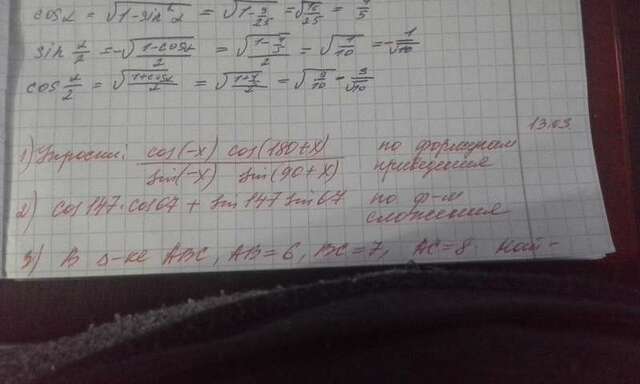 cosα = √1-sin²α = √1-9/25 = √16/25 = 4/5
sin α/2 = -√(1-cosα)/2 = √(1-4/5)/2 = √1/10 = -1/√10
cos α/2 = √(1+cosα)/2 = √(1+4/5)/2 = √9/10 = 3/√10
13.03
1) Упростить: cos(-x) cos(180+x) / sin(-x) sin(90+x) по формулам приведения
2) cos147·cos67 + sin147 sin67 по ф-м сложения
3) В Δ-ке ABC, AB=6, BC=7, AC=8. Най-